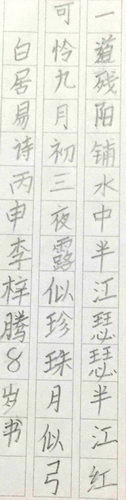 一道残阳铺水中半江瑟瑟半江红
可怜九月初三夜露似珍珠月似弓
白居易诗丙申李梓腾8岁书